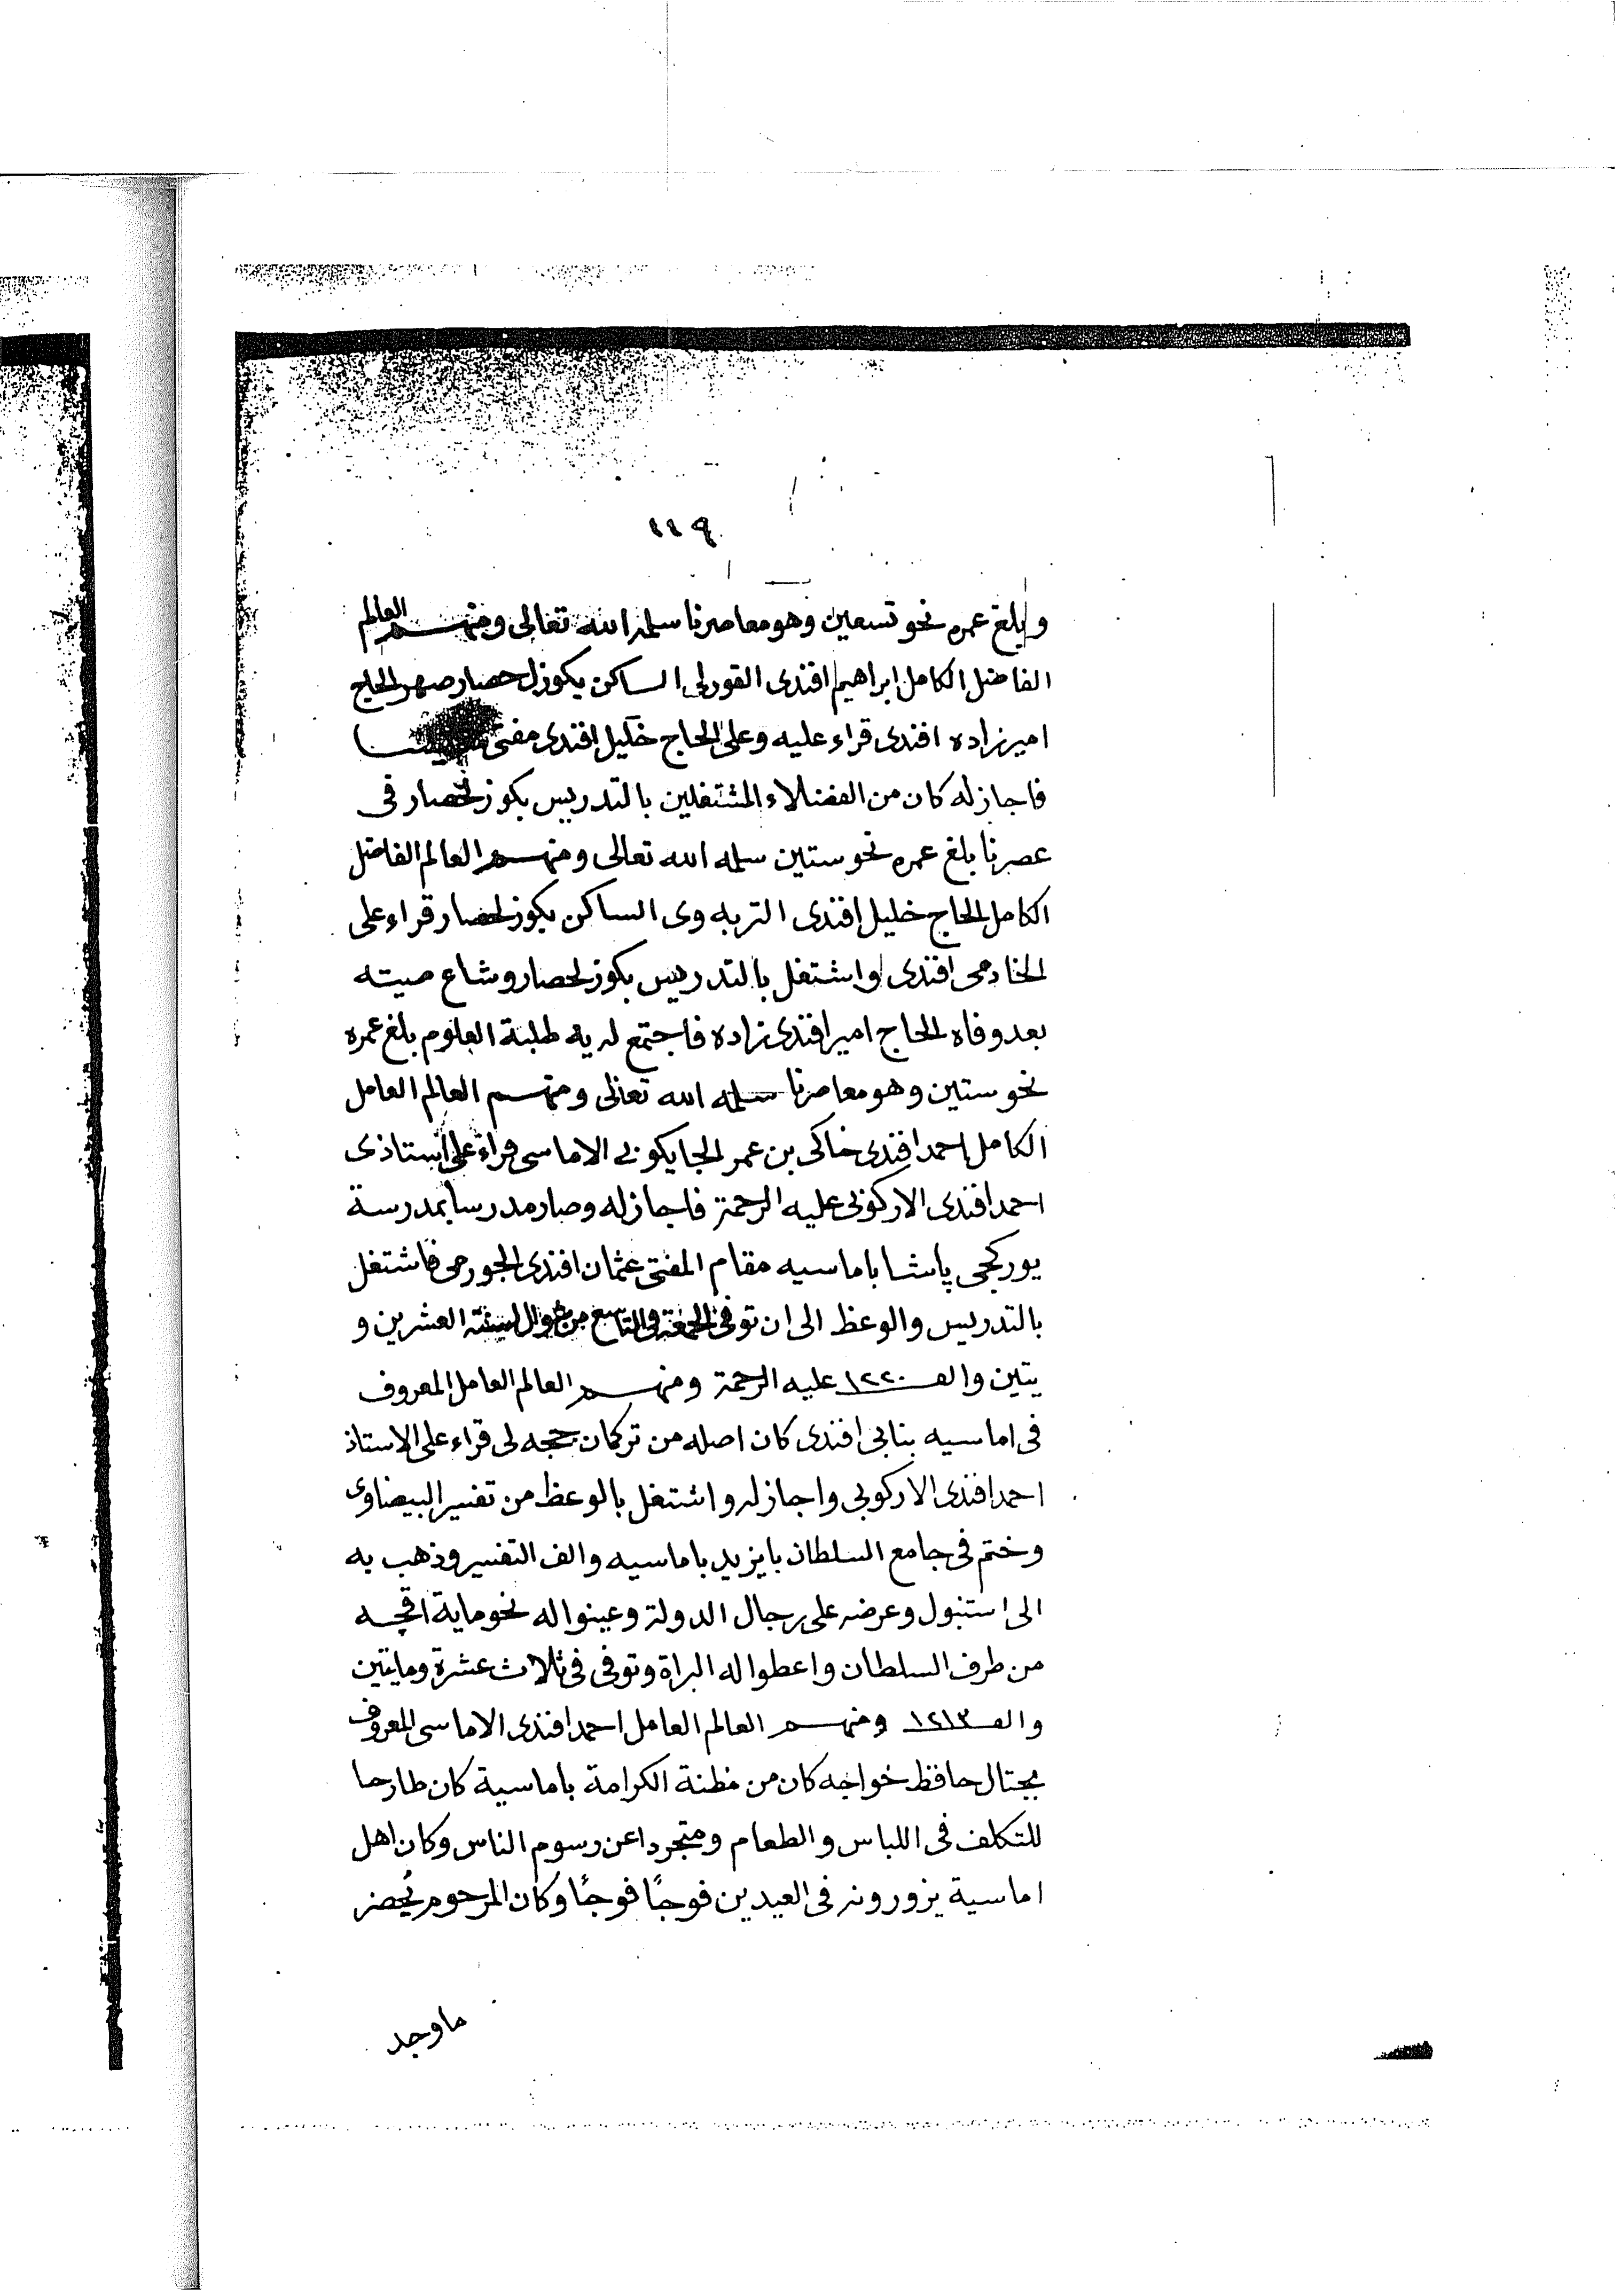 ١١٩
وبلغ عمره نحو تسعين وهو معاصرنا سلمه الله تعالى ومنهم العالم
الفاضل الكامل ابراهيم افندى القورلى الساكن بكوزل حصار صهر الحاج
اميرزاده افندى قراء عليه وعلى الحاج خليل افندى مفتى
فاجاز له كان من الفضلاء المشتغلين بالتدريس بكوزلحصار فى
عصرنا بلغ عمره نحو ستين سلمه الله تعالى ومنهم العالم الفاضل
الكامل الحاج خليل افندى التربه وى الساكن بكوزلحصار قراء على
الخادمى افندى واشتغل بالتدريس بكوزلحصار وشاع صيته
بعد وفاه الحاج امير افندى زاده فاجتمع لديه طلبة العلوم بلغ عمره
نحو ستين وهو معاصرنا سلمه الله تعالى ومنهم العالم العامل
الكامل احمد افندى خاكى بن عمر الجايكويى الاماسى قراء على استاذى
احمد افندى الاركوبى عليه الرحمة فاجاز له وصار مدرسا بمدرسة
يوركجى پاشا باماسيه مقام المفتى عثمان افندى الجورمى فاشتغل
بالتدريس والوعظ الى ان توفى الجمعة فى التاسع من شوال لسنة العشرين و
يتين والف ١٢٢٠ عليه الرحمة ومنهم العالم العامل المعروف
فى اماسيه بنابى افندى كان اصله من تركمان ججه لى قراء على الاستاذ
احمد افندى الاركوبى واجاز له واشتغل بالوعظ من تفسير البيضاوى
وختم فى جامع السلطان بايزيد باماسيه والف التفسير وذهب به
الى استنبول وعرضه على رجال الدولة وعينوا له نحو ماية اقچه
من طرف السلطان واعطوا له البراة وتوفى فى ثلاث عشرة ومايتين
والف ١٢١٣ ومنهم العالم العامل احمد افندى الاماسى المعروف
بجتال حافظ خواجه كان من مظنة الكرامة باماسية كان طارحا
للتكلف فى اللباس والطعام ومتجردا عن رسوم الناس وكان اهل
اماسية يزورونه فى العيدين فوجًا فوجًا وكان المرحوم يُحضر
ماوجد